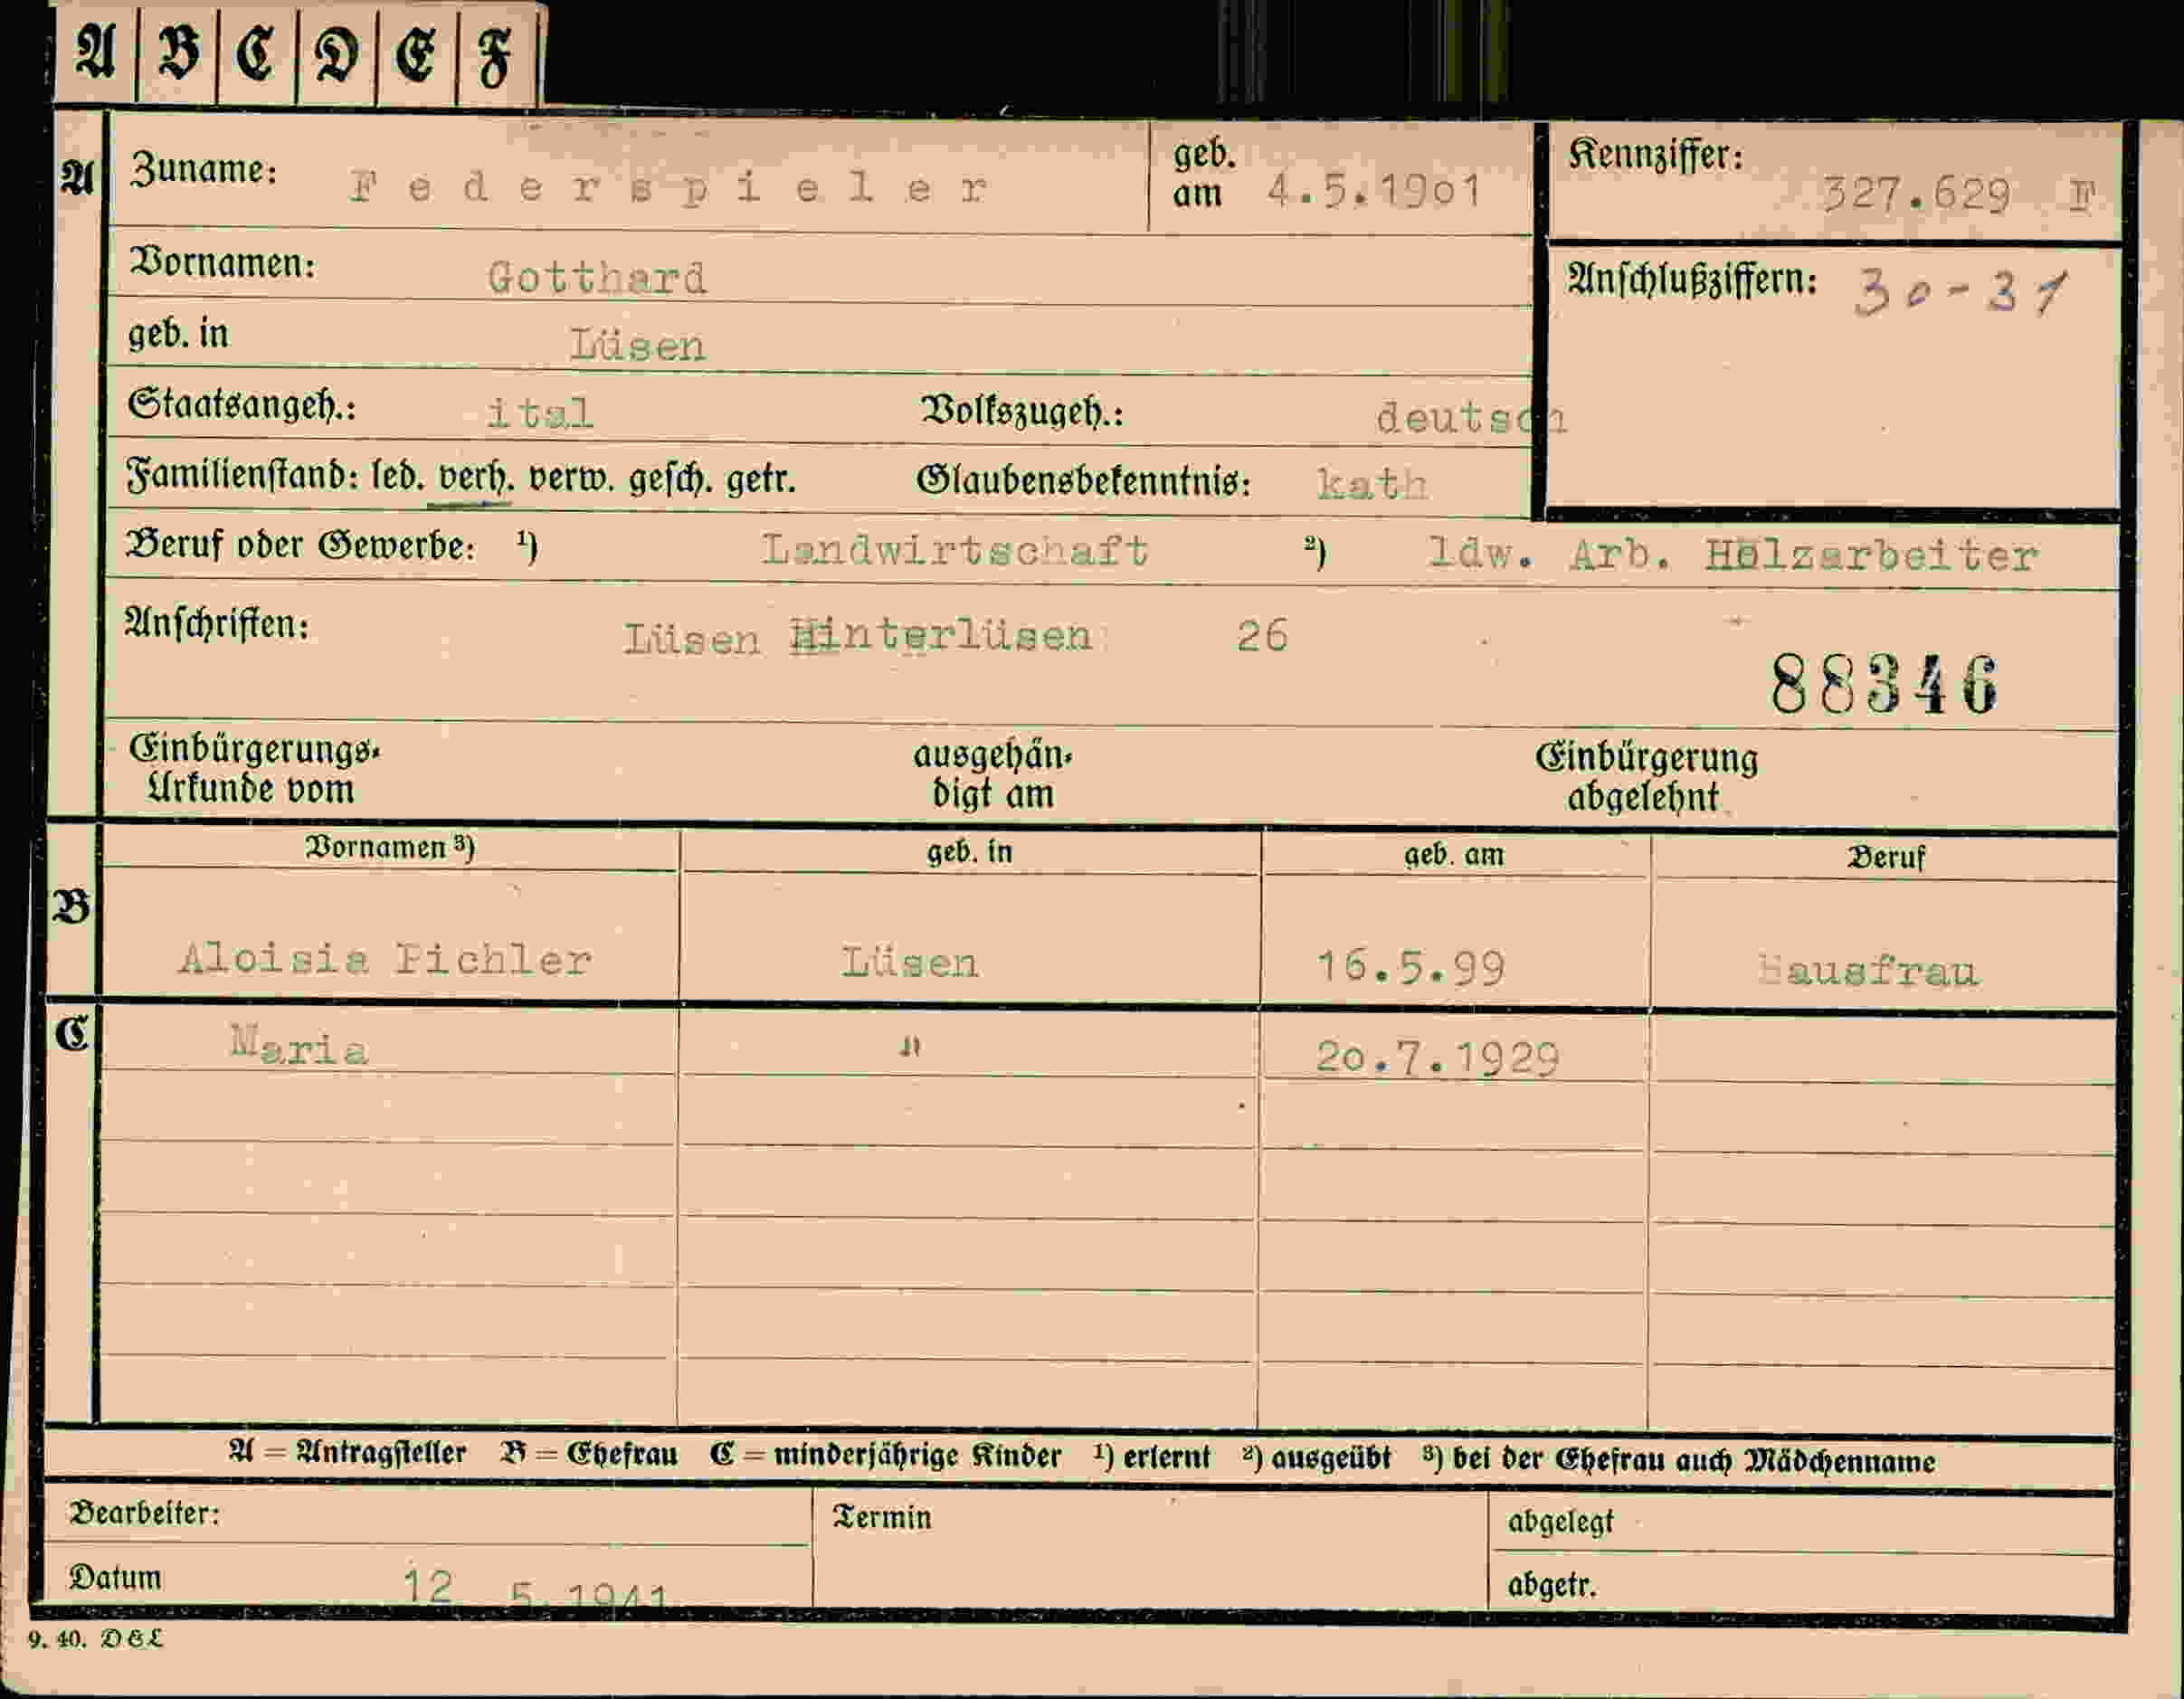 A B C D E F
A Zuname: Federspieler geb. am 4.5.1901 Kennziffer: 327.629 F
Vornamen: Gotthard Anschlußziffern: 30-31
geb. in Lüsen
Staatsangeh.: ital Volkszugeh.: deutsch
Familienstand: led. verh. verw. gesch. getr. Glaubensbekenntnis: kath
Beruf oder Gewerbe: ¹) Landwirtschaft ²) ldw. Arb. Holzarbeiter
Anschriften: Lüsen Hinterlüsen 26
88346
Einbürgerungs- ausgehän- Einbürgerung
Urkunde vom digt am abgelehnt
Vornamen ³) geb. in geb. am Beruf
B Aloisia Pichler Lüsen 16.5.99 Hausfrau
C Maria " 20.7.1929
A = Antragsteller B = Ehefrau C = minderjährige Kinder ¹) erlernt ²) ausgeübt ³) bei der Ehefrau auch Mädchenname
Bearbeiter: Termin abgelegt
Datum 12 5.1941 abgetr.
9. 40. D&L